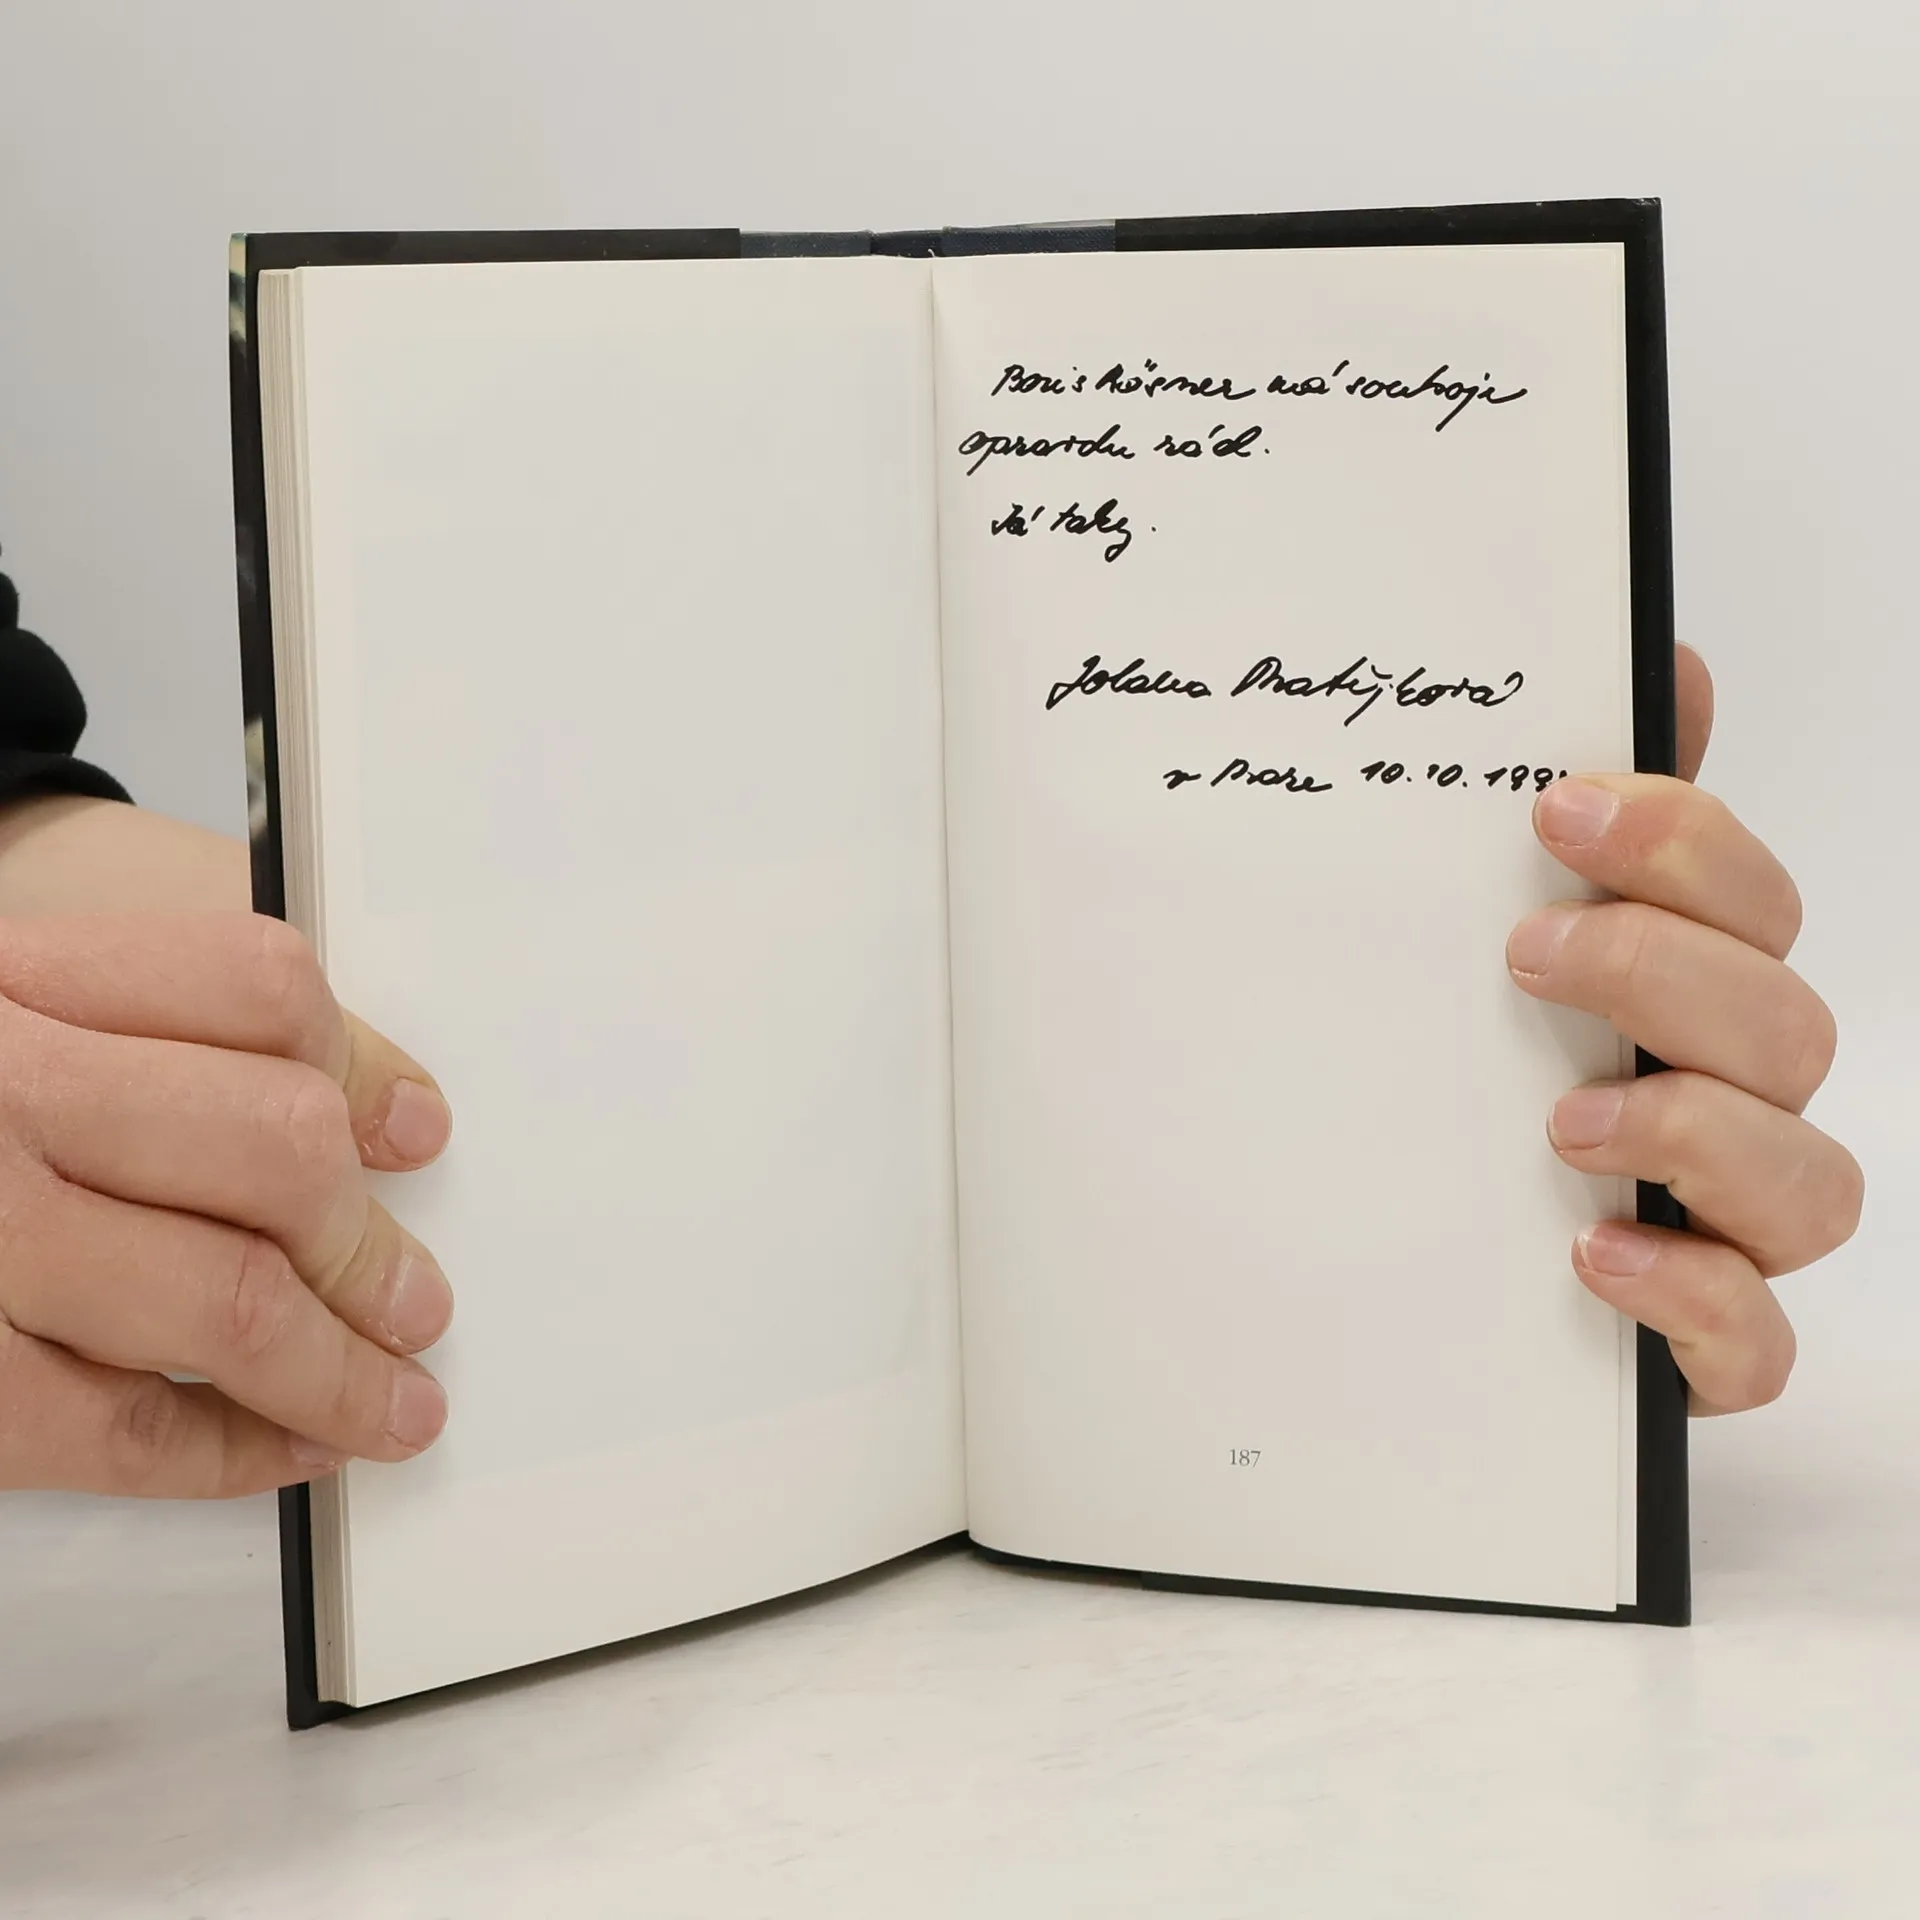 Boris Rösner má souboje
opravdu rád.
Já taky.
Jolana Matějková
v Praze 10.10.199
187